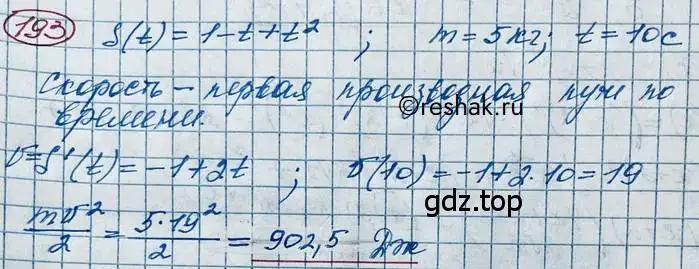 193 S(t) = 1 - t + t² ; m = 5 кг; t = 10 с
Скорость – первая производная пути по
времени.
©reshak.ru
v = S'(t) = -1 + 2t ; v(10) = -1 + 2·10 = 19
gdz.top
mv²/2 = 5·19²/2 = 902,5 Дж